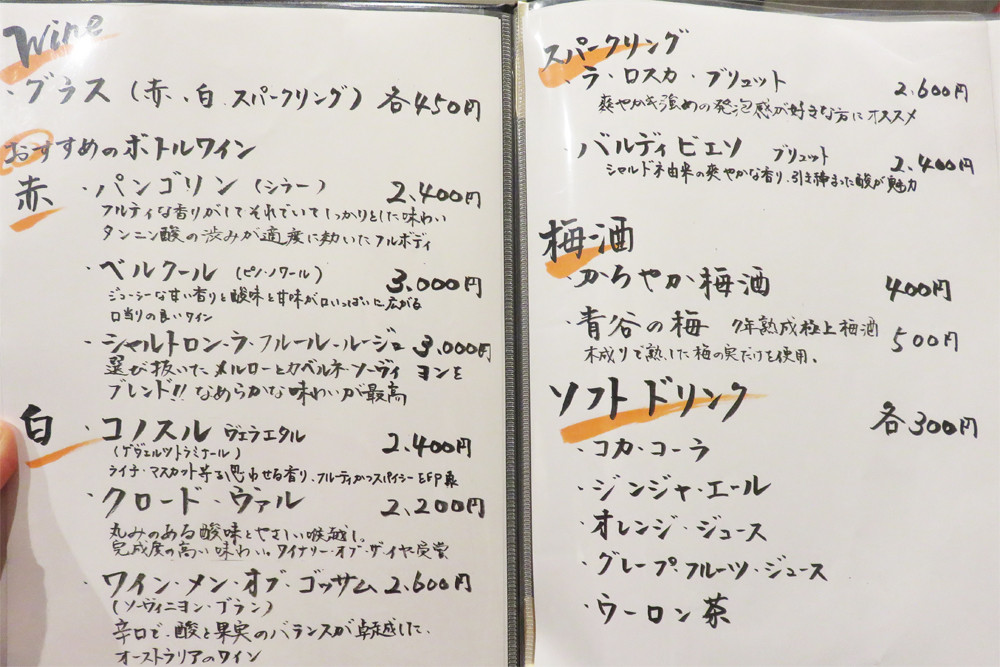 Wine
・グラス（赤、白、スパークリング） 各450円
おすすめのボトルワイン
赤
・パンゴリン（シラー） 2,400円
フルティな香りがしてそれでいてしっかりとした味わい
タンニン酸の渋みが適度に効いたフルボディ
・ベルクール（ピノ・ノワール） 3,000円
ジューシーな甘い香りと酸味と甘味が口いっぱいに広がる
口当りの良いワイン
・シャルトロン・ラ・フルール・ルージュ 3,000円
選び抜いたメルローとカベルネ・ソーヴィヨンを
ブレンド!!なめらかな味わいが最高
白
・コノスル ヴェラエタル 2,400円
（ゲヴェルツトラミナール）
ライチ・マスカット等を思わせる香り、フルーティかつスパイシーな印象
・クロード・ヴァル 2,200円
丸みのある酸味とやさしい喉越し。
完成度の高い味わい。ワイナリー・オブ・ザ・イヤ受賞
・ワイン・メン・オブ・ゴッサム 2,600円
（ソーヴィニヨン・ブラン）
辛口で、酸と果実のバランスが卓越した、
オーストラリアのワイン
スパークリング
・ラ・ロスカ・ブリュット 2,600円
爽やかで強めの発泡感が好きな方にオススメ
・バルディビエソ ブリュット 2,400円
シャルドネ由来の爽やかな香り、引き締まった酸が魅力
梅酒
・かろやか梅酒 400円
・青谷の梅 7年熟成極上梅酒 500円
木成りで熟した梅の実だけを使用。
ソフトドリンク 各300円
・コカ・コーラ
・ジンジャ・エール
・オレンジ・ジュース
・グレープ・フルーツ・ジュース
・ウーロン茶